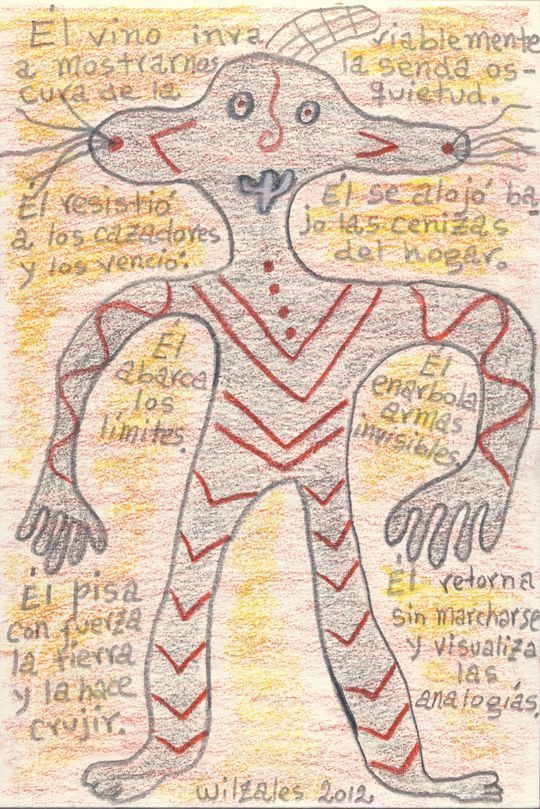 Él vino inva riablemente
a mostrarnos la senda os-
cura de la quietud.
Él resistió
a los cazadores
y los venció.
Él se alojó ba
jo las cenizas
del hogar.
Él
abarca
los
límites.
Él
enarbola
armas
invisibles.
Él pisa
con fuerza
la tierra
y la hace
crujir.
Él retorna
sin marcharse
y visualiza
las
analogías.
Wilzales 2012